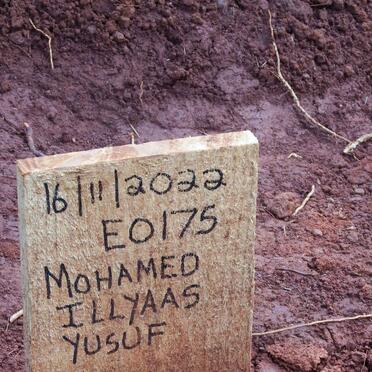 16/11/2022
E0175
MOHAMED
ILLYAAS
YUSUF